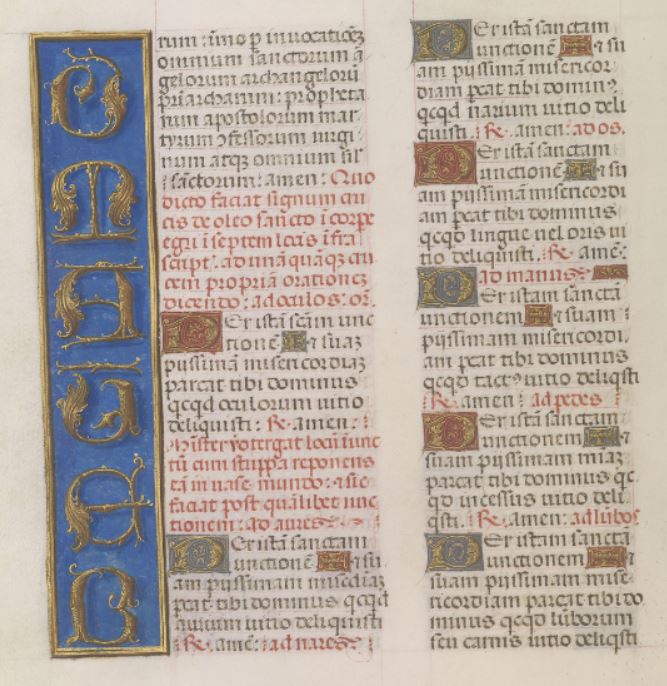 rum: imo p invocatioēz
omnium sanctorum ā
gelorum archangelorū
priarcharum: propheta
rum apostolorum mar
tyrum ɔfessorum virgi
num atqꝫ omnium sil
sanctorum: amen: Quo
dicto faciat signum cru
cis de oleo sancto ī corpe
egri ī septem locis īfra
script. ad unāquāqꝫ cru
cem propriā orationeꝫ
dicendo: ad oculos: or.
Per istā scām unc
tionē ✠ ⁊ suaꝫ
piissimā misericordiaꝫ
parcat tibi dominus
qcqd oculorum uitio
deliquisti: ℟. amen:
Mister ɔtergat locū īunc
tū cum stuppa reponens
eā in uase mundo: ⁊ sic
faciat post quālibet unc
tionem: ad aures:
Per istā sanctam
unctionē ✠ ⁊ su
am piissimam mīsediaꝫ
pcat tibi dominus qcqd
aurium uitio deliquisti
℟. amē: ad nares:
Per istā sanctam
unctionē ✠ ⁊ su
am piissimā misericor
diam pcat tibi dominꝰ
qcqd narium uitio deli
quisti. ℟. amen: ad os.
Per istā sanctam
unctionē ✠ ⁊ su
am piissimā misericordi
am pcat tibi dominus
qcqd lingue uel oris ui
tio deliquisti. ℟. amē:
ad manus:
Per istam sanctā
unctionem ✠ ⁊ suam
piissimam misericordi
am pcat tibi dominus
qcqd tactꝰ uitio deliqsti
℟. amen: ad pedes
Per istā sanctam
unctionem ✠ ⁊
suam piissimam mīaꝫ
parcat tibi dominus qc
qd incessus uitio deli
qsti. ℟. amen: ad lūbos
Per istam sanctā
unctionem ✠ ⁊
suam piissimam mise
ricordiam parcat tibi do
minus qcqd lūborum
seu carnis uitio deliqsti